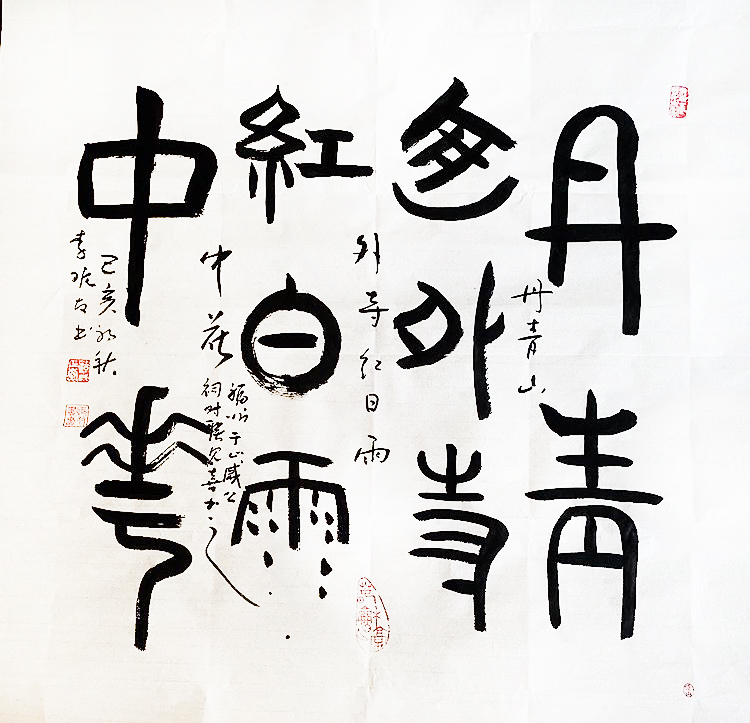 丹青
外寺
紅日雨
中華
丹青山
外寺红日雨
中花
福州于山戚公
祠对联见喜书之
己亥初秋